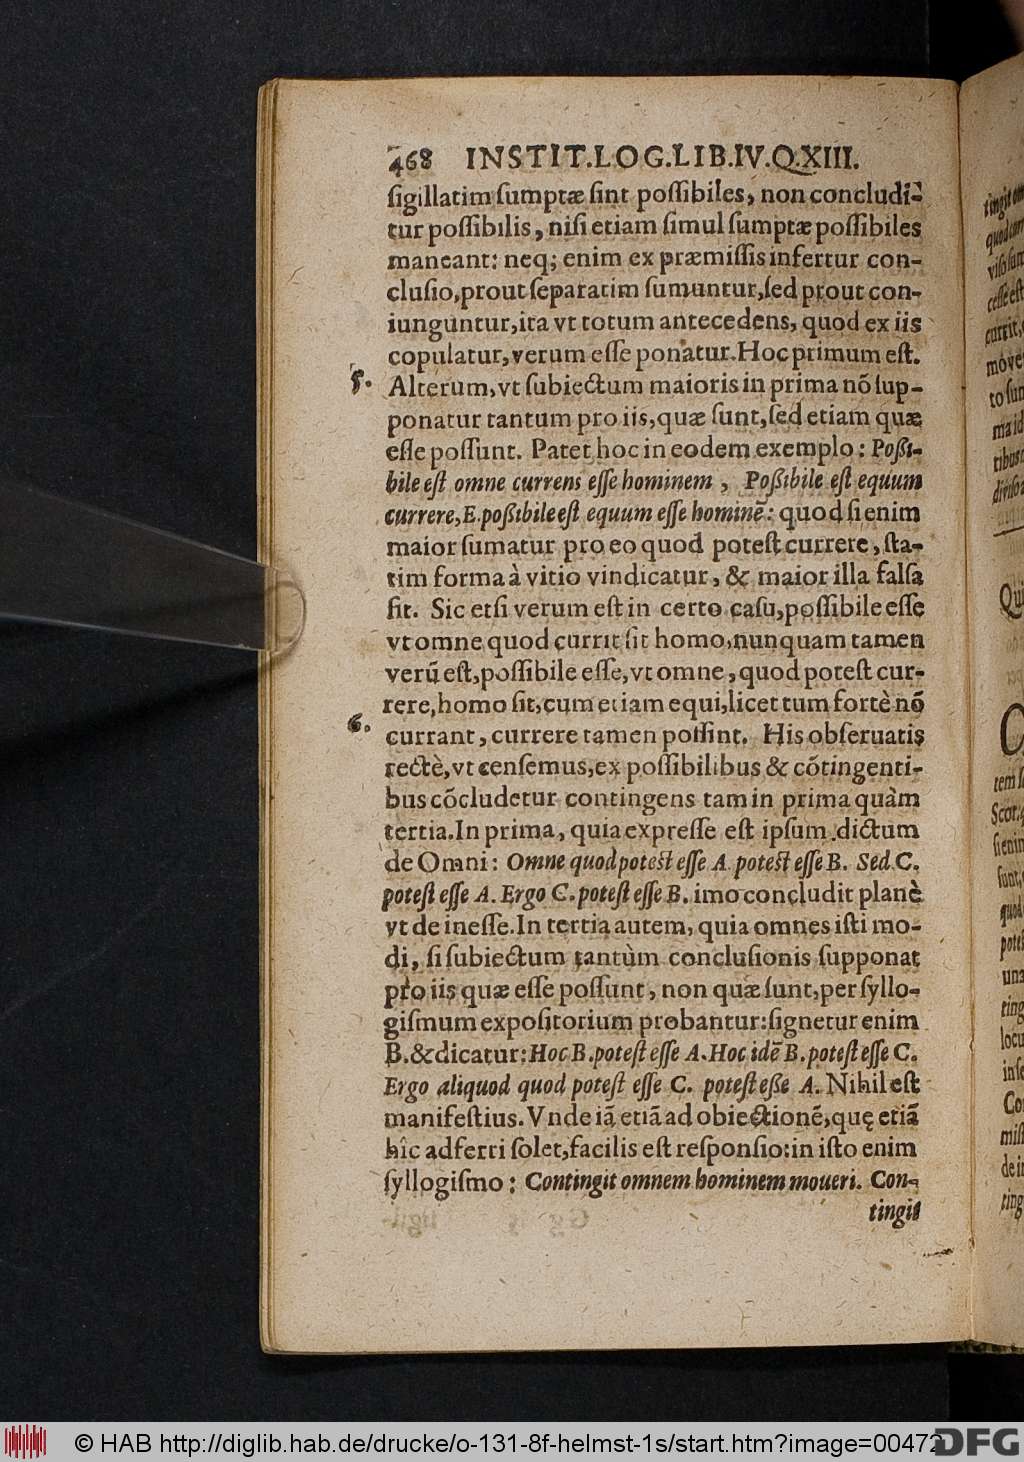 468 INSTIT.LOG.LIB.IV.Q.XIII.
sigillatim sumptæ sint possibiles, non concludi-
tur possibilis, nisi etiam simul sumptæ possibiles
maneant: neq; enim ex præmissis infertur con-
clusio, prout separatim sumuntur, sed prout con-
iunguntur, ita vt totum antecedens, quod ex iis
copulatur, verum esse ponatur. Hoc primum est.
5. Alterum, vt subiectum maioris in prima nõ sup-
ponatur tantum pro iis, quæ sunt, sed etiam quæ
esse possunt. Patet hoc in eodem exemplo: Poßi-
bile est omne currens esse hominem, Poßibile est equum
currere, E. poßibile est equum esse hominẽ: quod si enim
maior sumatur pro eo quod potest currere, sta-
tim forma à vitio vindicatur, & maior illa falsa
fit. Sic etsi verum est in certo casu, possibile esse
vt omne quod currit sit homo, nunquam tamen
verũ est, possibile esse, vt omne, quod potest cur-
rere, homo sit, cum etiam equi, licet tum fortè nõ
6. currant, currere tamen possint. His obseruatis
rectè, vt censemus, ex possibilibus & cõtingenti-
bus cõcludetur contingens tam in prima quàm
tertia. In prima, quia expresse est ipsum dictum
de Omni: Omne quod potest esse A potest esse B. Sed C.
potest esse A. Ergo C. potest esse B. imo concludit planè
vt de inesse. In tertia autem, quia omnes isti mo-
di, si subiectum tantùm conclusionis supponat
pro iis quæ esse possunt, non quæ sunt, per syllo-
gismum expositorium probantur: signetur enim
B. & dicatur: Hoc B. potest esse A. Hoc idẽ B. potest esse C.
Ergo aliquod quod potest esse C. potest eße A. Nihil est
manifestius. Vnde iã etiã ad obiectionẽ, quę etiã
hîc adferri solet, facilis est responsio: in isto enim
syllogismo: Contingit omnem hominem moueri. Con-
tingit
© HAB http://diglib.hab.de/drucke/o-131-8f-helmst-1s/start.htm?image=00472
DFG